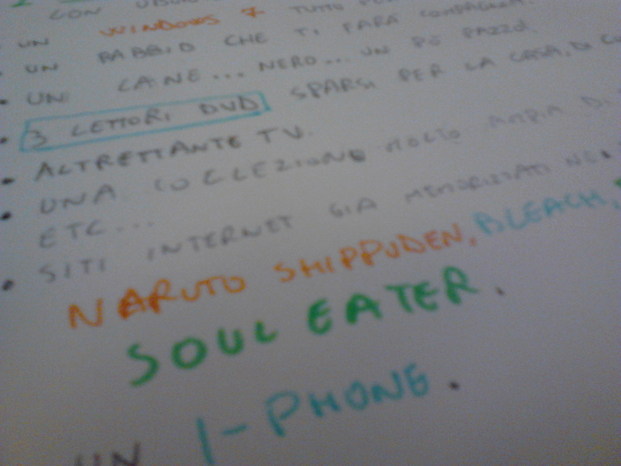 CON
UN WINDOWS 7 TUTTO
UN BABBIO CHE TI FARÀ COMPAGNIA
UN CANE... NERO... UN PÒ PAZZO.
3 LETTORI DVD SPARSI PER LA CASA, DI
ALTRETTANTE TV.
UNA COLLEZIONE MOLTO AMPIA DI
ETC...
SITI INTERNET GIA MEMORIZZATI
NARUTO SHIPPUDEN, BLEACH,
SOUL EATER.
UN I-PHONE.